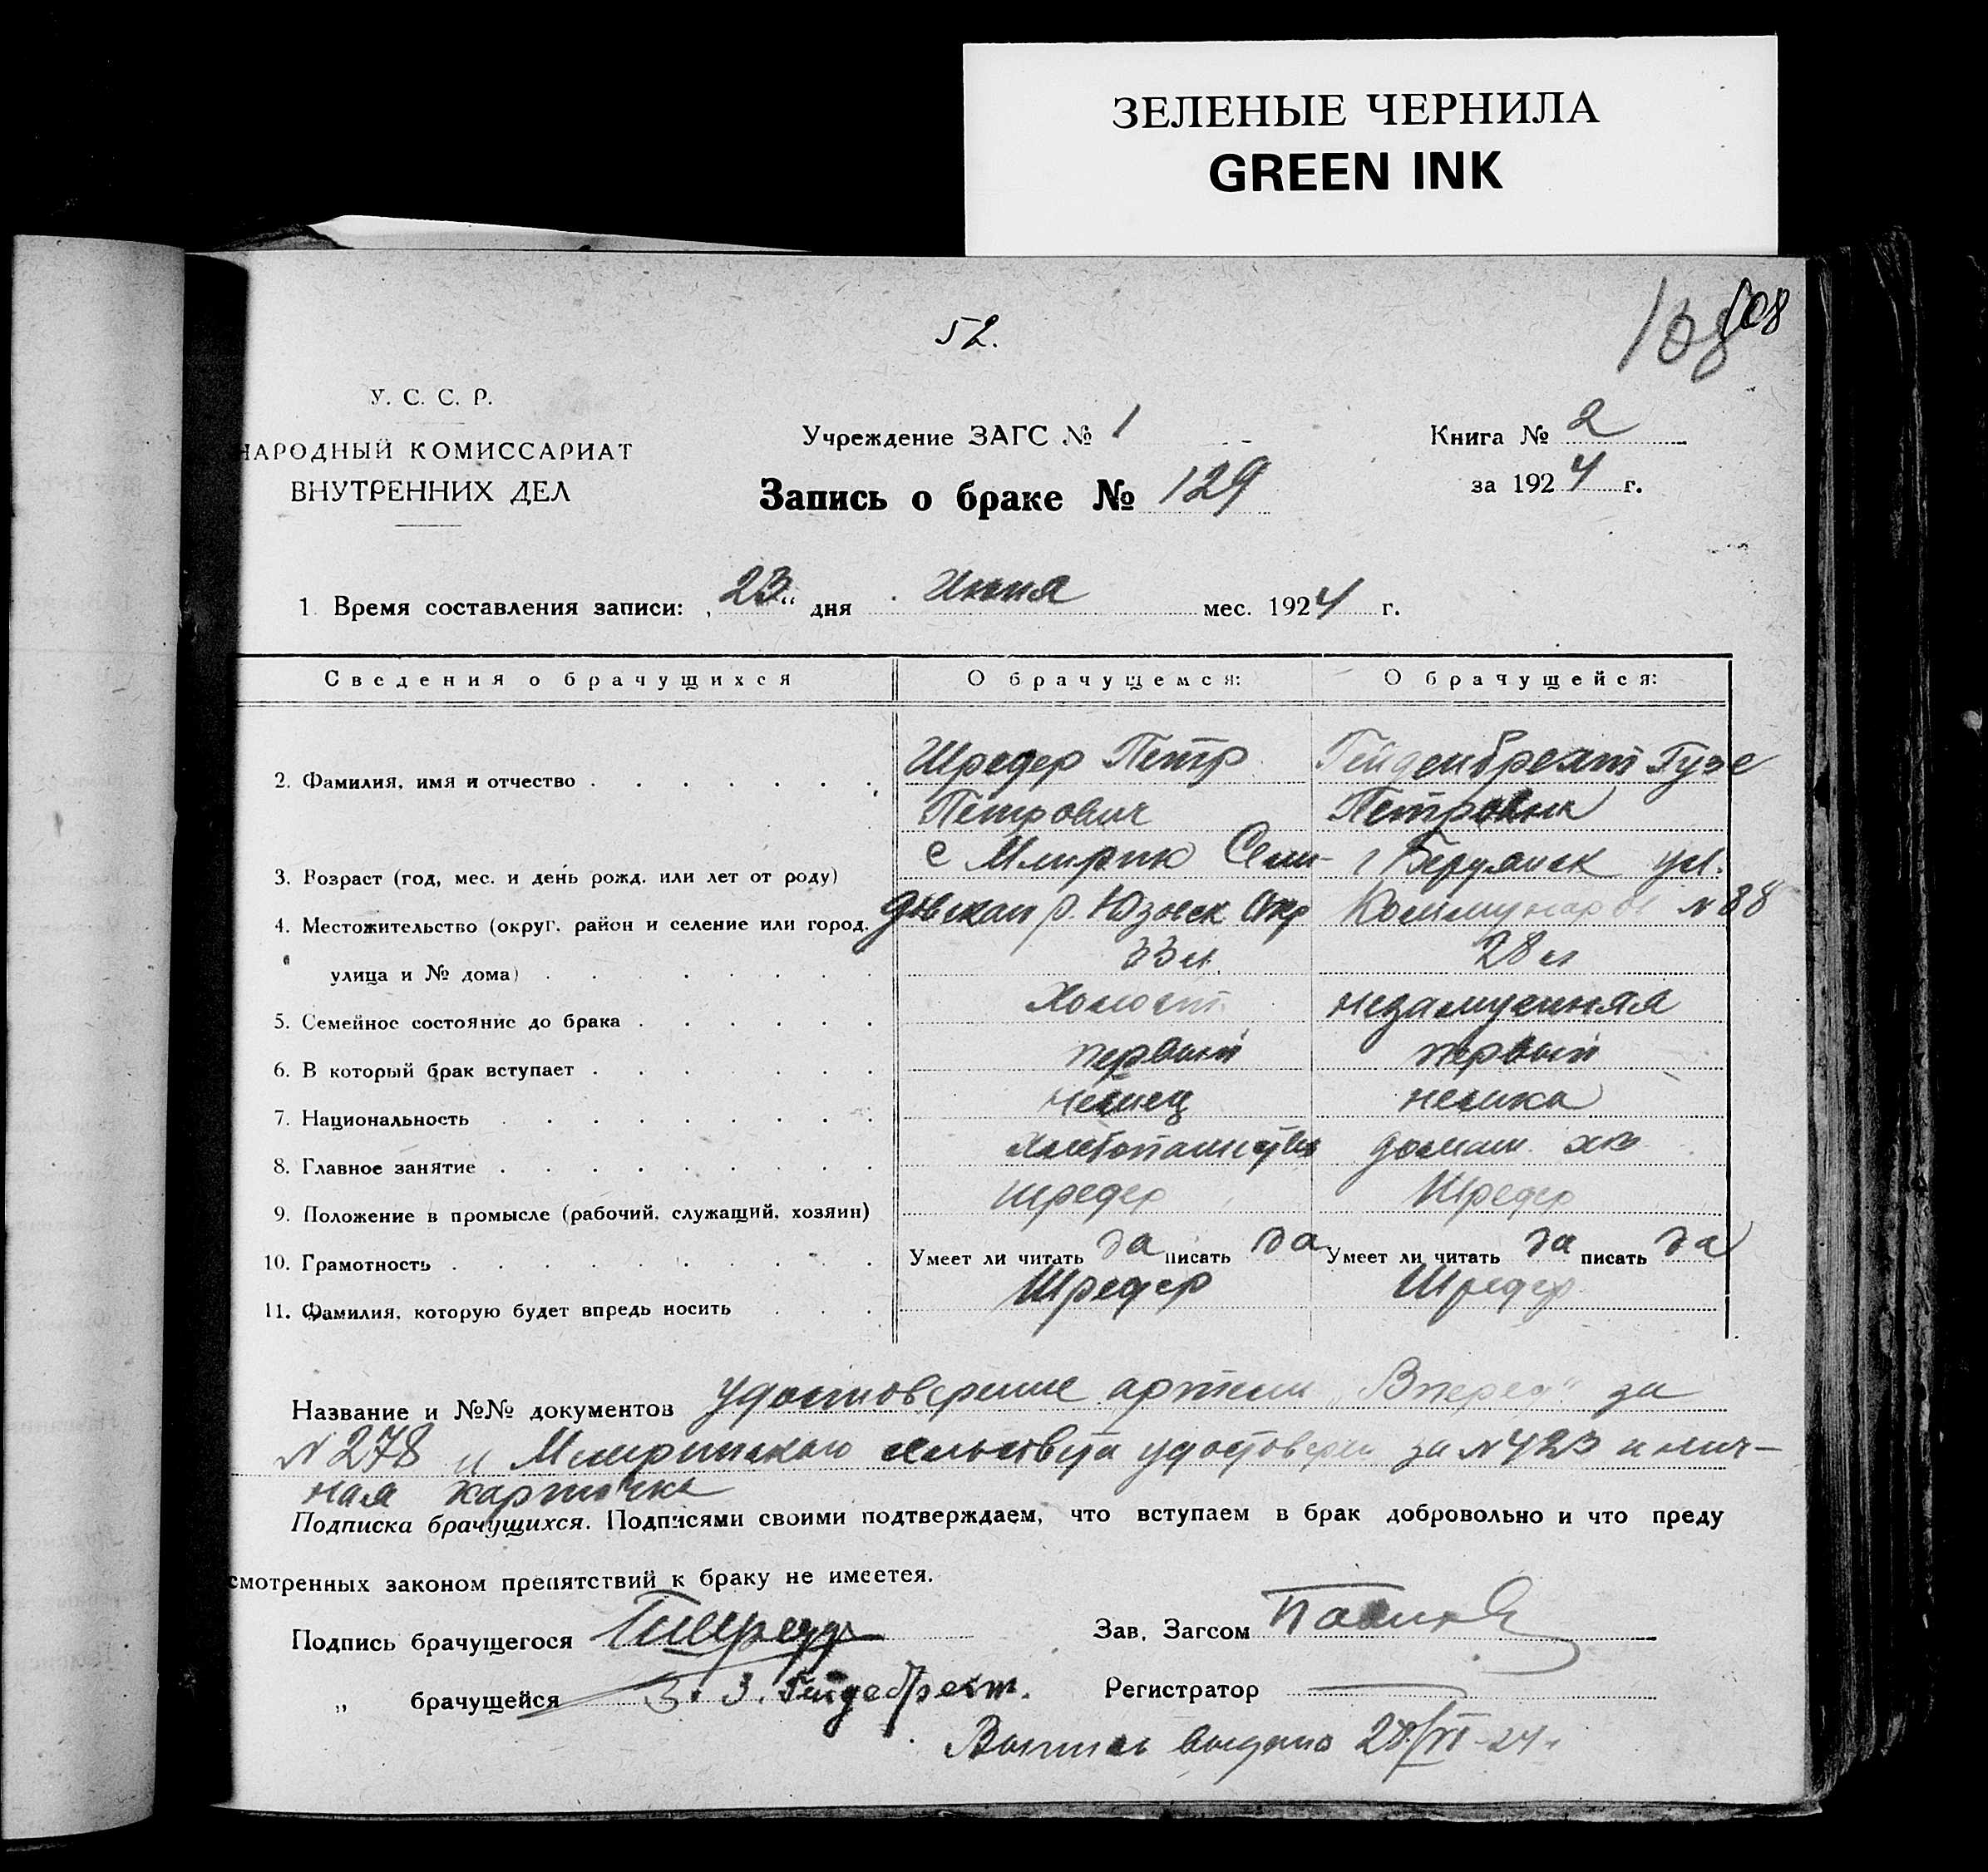 ЗЕЛЕНЫЕ ЧЕРНИЛА
GREEN INK
52.
108 108
У. С. С. Р.
НАРОДНЫЙ КОМИССАРИАТ
ВНУТРЕННИХ ДЕЛ
Учреждение ЗАГС № 1
Запись о браке № 129
Книга № 2
за 1924 г.
1. Время составления записи: „23" дня Июня мес. 1924 г.
Сведения о брачущихся О брачущемся: О брачущейся:
2. Фамилия, имя и отчество Шредер Петр Гейденбрехт Гузе
Петрович Петровна
3. Возраст (год, мес. и день рожд. или лет от роду) с г Бердянск ул.
4. Местожительство (округ, район и селение или город, р. Юзовск Окр Коммунаров № 88
улица и № дома) 33 л. 28 л
5. Семейное состояние до брака Холост незамужняя
6. В который брак вступает первый первый
7. Национальность немец немка
8. Главное занятие домаш. хоз
9. Положение в промысле (рабочий, служащий, хозяин) Шредер Шредер
10. Грамотность Умеет ли читать да писать да Умеет ли читать да писать да
11. Фамилия, которую будет впредь носить Шредер Шредер
Название и №№ документов удостоверение артели „Вперед" за
№ 278 и сельсовета удостовер за № 423 и лич-
ная карточка
Подписка брачущихся. Подписями своими подтверждаем, что вступаем в брак добровольно и что преду
смотренных законом препятствий к браку не имеется.
Подпись брачущегося
Зав. Загсом
„ брачущейся Гейдебрехт.
Регистратор
Выпись выдана 28/VI-24 г